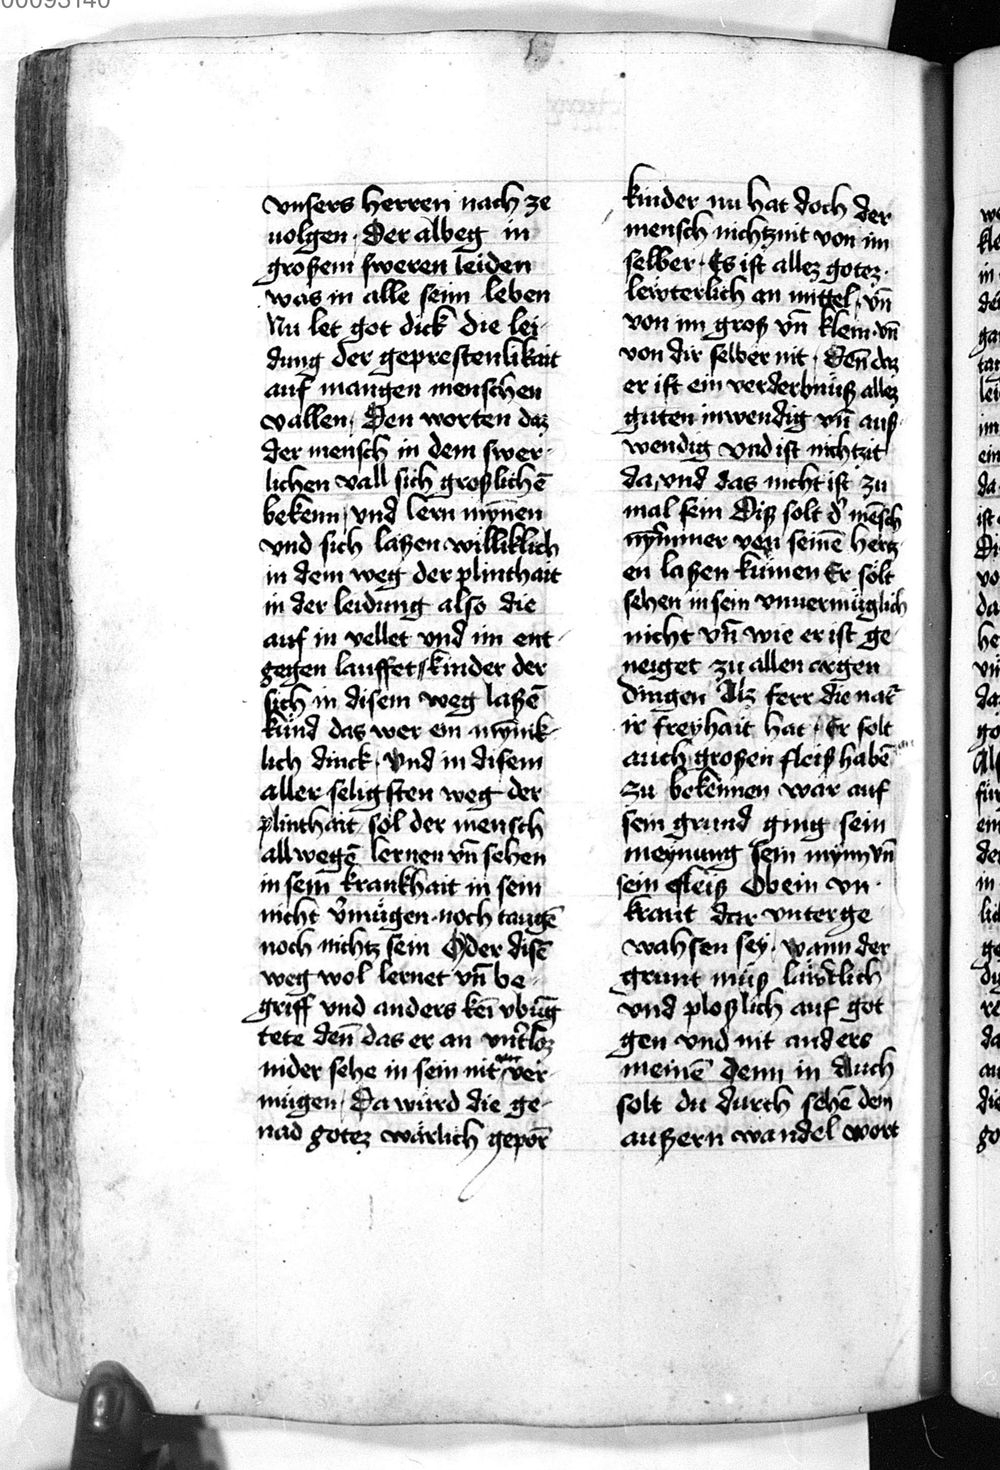 00093140
vnsers herren nach ze
uolgen · Der albeg in
großem sweren leiden
was in alle seim leben
Nu let got dick die lei-
dung der geprestenlikait
auf mangen menschen
vallen · Den worten daz
der mensch in dem swer-
lichen vall sich großlichē
bekenn / vnd lern mynnen
vnd sich laßen williklich
in dem weg der plinthait
in der leidung also die
auf in vellet vnd im ent-
gegen lauffet // kinder der
sich in disem weg laßē
künd das wer ein mynnik-
lich dinck · vnd in disem
aller seligsten weg der
plinthait sol der mensch
allwegē lernen vn̄ sehen
in sein krankhait in sein
nicht v̓mügen · noch taugē
noch nichtz sein Oder disē
weg wol lernet vn̄ be-
griff vnd anders kei͞ vbūg
tete den̄ das er an vnt̓loz
nider sehe in sein nit ver-
mügen · Da würd die ge-
nad gotez wärlich gepor̄
kinder nu hat doch der
mensch nichtznit von im
selber · Es ist allez gotez ·
lewterlich an mittel · vn̄
von im groß vn̄ klein · vn̄
von dir selber nit · Den̄ daz
er ist ein verderbnüß allez
guten inwendig vn̄ auß-
wendig vnd ist nichtzit
da, vnd das nicht ist zu
mal sein Diß solt d̓ mēsch
nymmer von seinē hertz-
en laßen kumen Er solt
sehen in sein vnuermüglich
nicht vn̄ wie er ist ge-
neiget zu allen argen
dingen Alz ferr die nat̓
ir freyhait hat · Er solt
auch großen fleiß habē
zu bekennen war auf
sein grund ging sein
meynung sein mynn vn̄
sein fleiß Ob ein vn-
kraut dar vnter ge-
wahsen sey · wann der
grunt müß laüt̓lich
vnd ploßlich auf got
gen vnd nit anders
meinē denn in Auch
solt du durch sehē dem
außern wandel wort